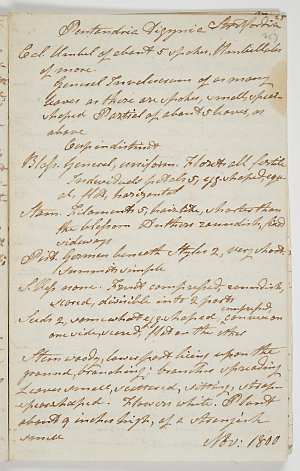 Pentandria Digynia
Cal. Umbel of about 5 spokes. Umbellules
of more.
General Involucrum of as many
leaves as there are spokes, small, spear-
shaped. Partial of about 5 leaves, as
above
Cup indistinct
Bloss. General, uniform. Florets all fertile
Individuals petals 5, egg shaped, equ-
al, horizontal
Stam. Filaments 5, hairlike, shorter than
the blossom. Anthers roundish, fixed
sideways
Pist. Germen beneath. Styles 2, very short
Summits simple
S. Ves. none. Fruit compressed, roundish,
scored, divisible into 2 parts
Seeds 2, somewhat egg shaped, compressed, convex on
one side, scored, flat on the other
Stem woody, lower part lying upon the
ground, branching; branches spreading
Leaves small, scattered, sitting, strap-
spearshaped. Flowers white. Plant
about 9 inches high, of a strongish
smell
Nov: 1800